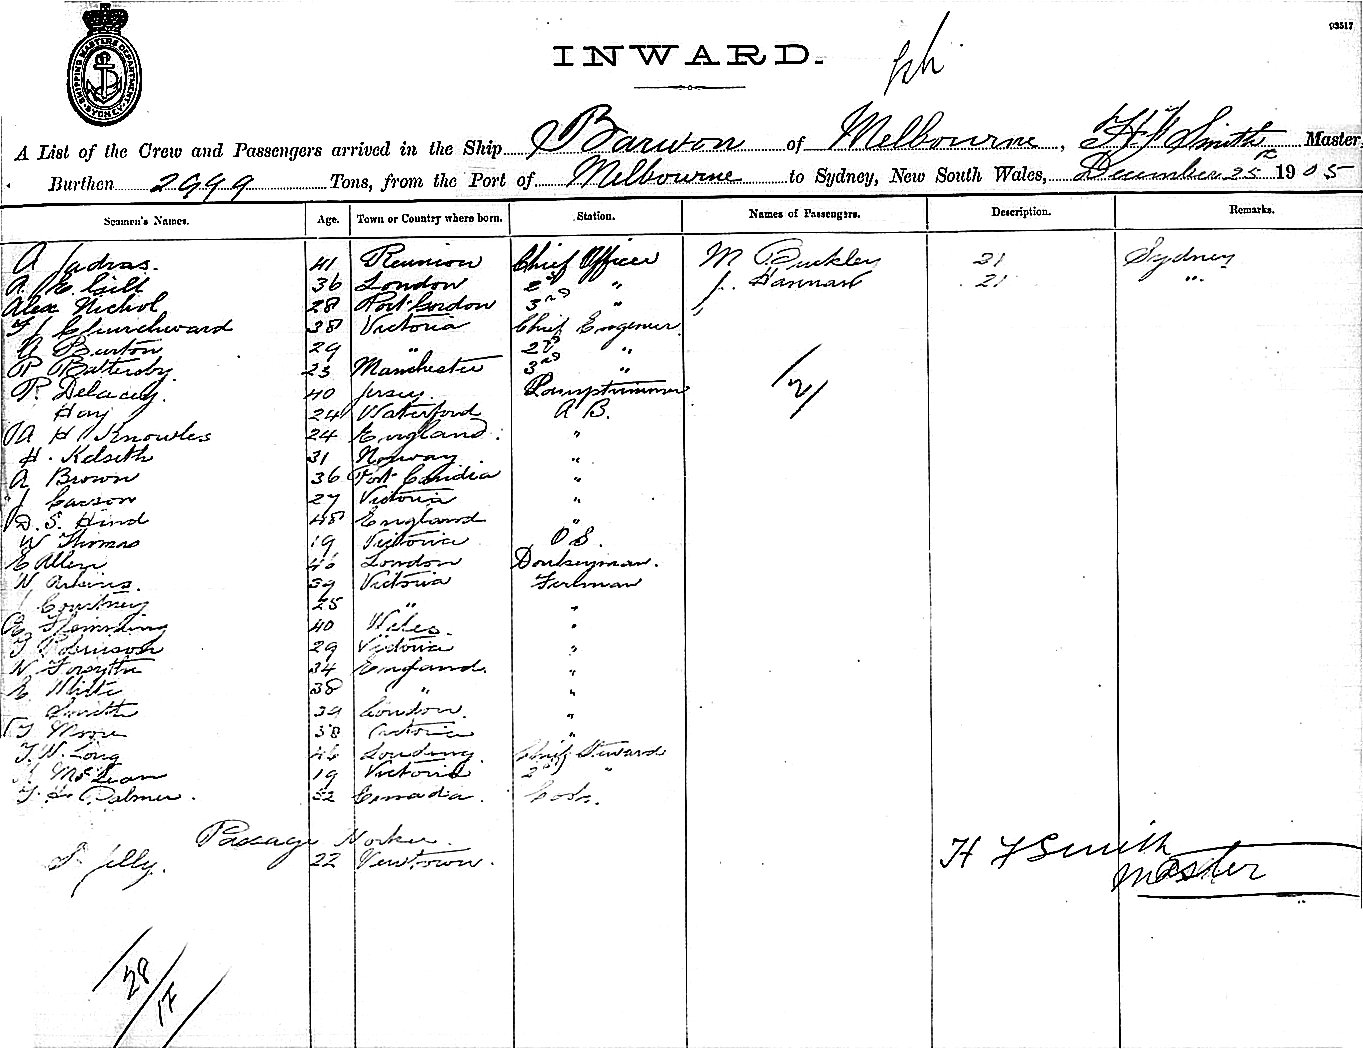 93517
SHIPPING MASTERS DEPARTMENT SYDNEY
INWARD.
A List of the Crew and Passengers arrived in the Ship Barwon of Melbourne, H F Smith Master,
Burthen 2999 Tons, from the Port of Melbourne to Sydney, New South Wales, December 25th 1905
Seamen's Names. Age. Town or Country where born. Station. Names of Passengers. Description. Remarks.
A 41 Reunion Chief Officer M Buckley 21 Sydney
A. E. Gilt 36 London 2nd " J. Hannah 21 "
Alex Nichol 28 Port Gordon 3rd "
F J Churchward 38 Victoria Chief Engineer
A Burton 29 " 2nd "
R Battersby 23 Manchester 3rd "
P. Delacey. 40 Jersey. Lamptrimmer /2/
Hay 24 Waterford A B.
A H Knowles 24 England. "
H. Kelseth 31 Norway "
A Brown 36 Port "
J Carson 27 Victoria "
D. S. Hind 48 England "
W Thomas 19 Victoria O S.
E Allen 46 London Donkeyman.
W 39 Victoria Fireman
J Courtney 25 " "
Flemming 40 Wales. "
T Robinson 29 Victoria "
W Forsyth 34 England. "
E White 38 " "
Smith 39 London. "
T Moore 38 Victoria "
T. W. Long 46 Chief Steward
McLean 19 Victoria 2nd "
T. H. Palmer. 52 Canada. Cook.
Passage Worker.
S. Jelly. 22 Newtown.
H F Smith
Master
28/17